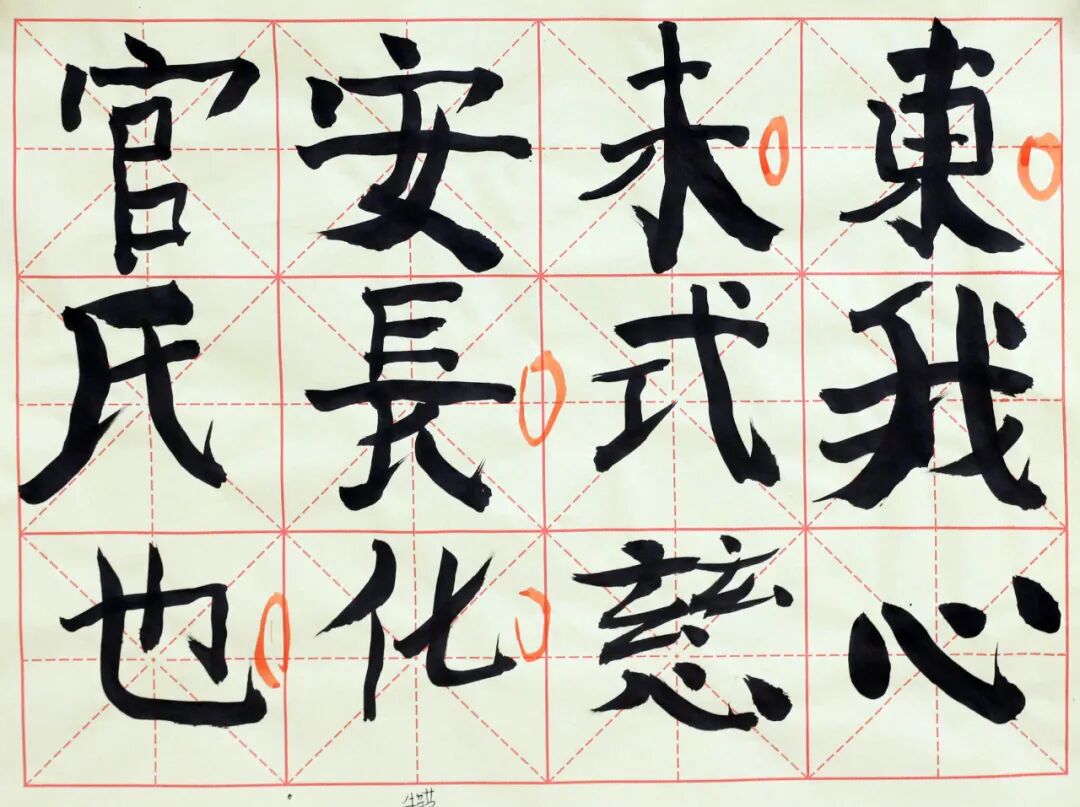 東我心
未式慈
安長化
官氏也